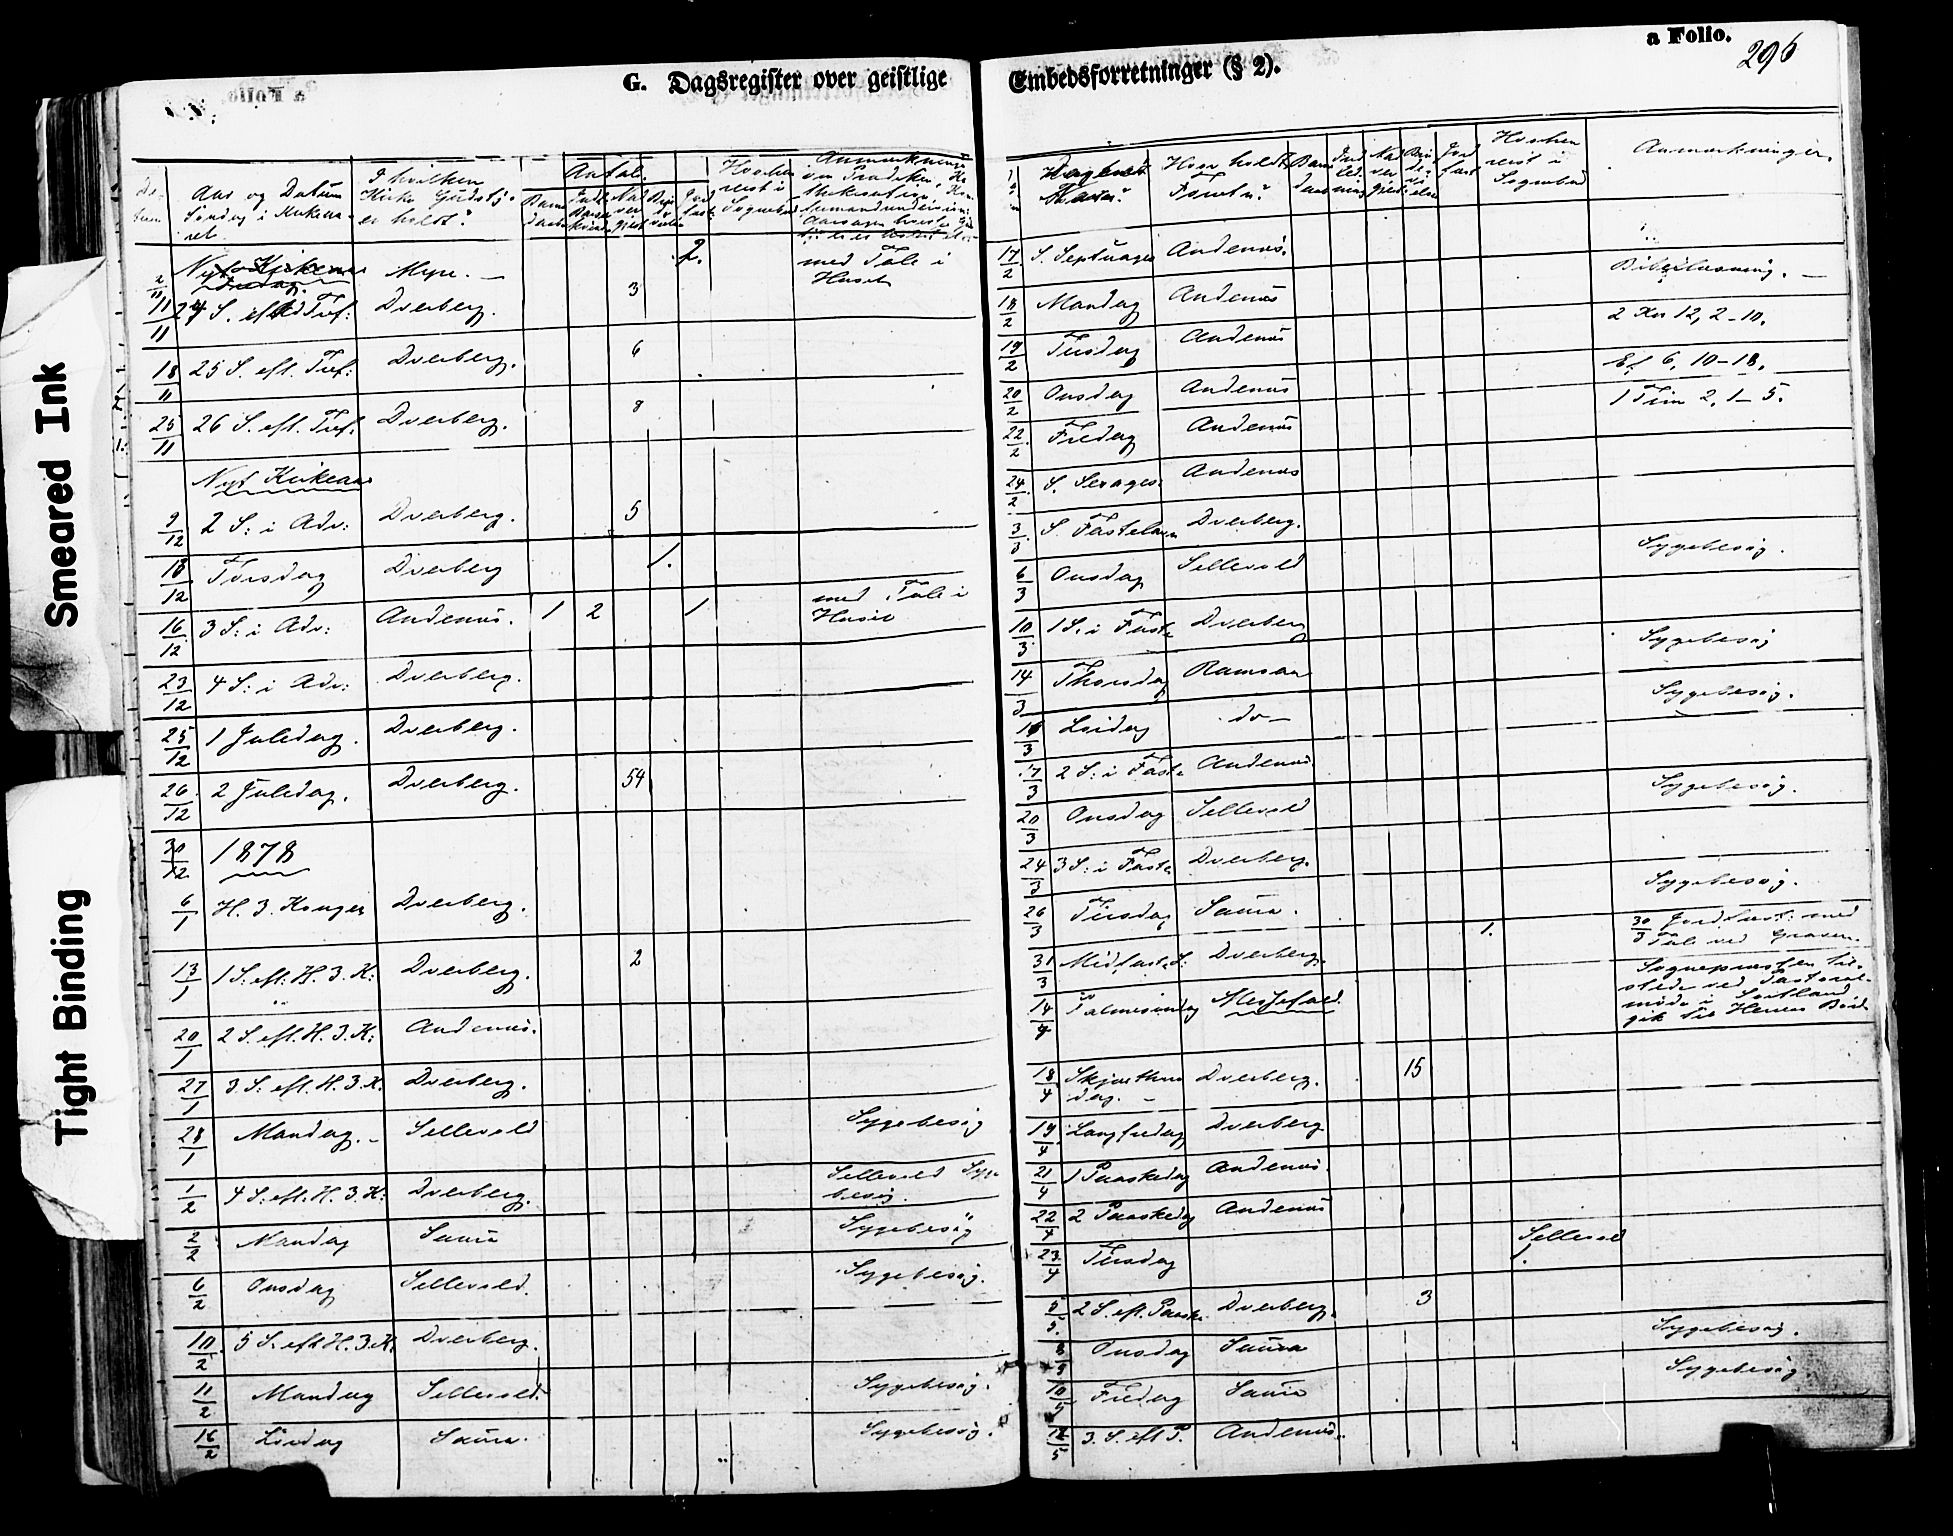 Smeared Ink
Tight Binding
G. Dagsregister over geistlige
Aar og Datum
Søndag i Kirkeaa-
ret
I hvilken
Kirke Gudstj.
er holdt?
Antal.
Nyt Kirkeaar
Mye. —
2.
med Tale i
Huset
11/11 24 S. eft Tref: Dverberg. 3
18/11 25 S. eft. Tref: Dverberg. 6
25/11 26 S. eft. Tref. Dverberg. 8
Nyt Kirkeaar
9/12 2 S: i Adv: Dverberg. 5
13/12 Torsdag Dverberg 1.
16/12 3 S: i Adv: Andenæs. 1 2 1 med Tale i
Huset
23/12 4 S: i Adv: Dverberg.
25/12 1 Juledag. Dverberg.
26/12 2 Juledag. Dverberg. 54
30/12 1878
6/1 H. 3. Konger Dverberg.
13/1 1 S: eft: H. 3. K: Dverberg. 2
20/1 2 S. eft. H. 3. K: Andenæs.
27/1 3 S: eft. H. 3. K. Dverberg.
28/1 Mandag. - Sellevold Sygebesøg
1/2 4 S: eft: H. 3. K: Dverberg. Sellevold Syge
besøg.
2/2 Mandag Saura Sygebesøg
6/2 Onsdag Sellevold. Sygebesøg.
10/2 5 S: eft H. 3. K. Dverberg.
11/2 Mandag Sellevold. Sygebesøg.
16/2 Lørdag Saura. Sygebesøg.
a Folio.
296
Embedsforretninger (§ 2).
Dagens
Navn?
Hvor holdt
Hvor
reist i
Sognebud
Anmærkninger.
17/2 S. Septuages Andenæs.
18/2 Mandag Andenæs Bibellæsning. —
19/2 Tirsdag Andenæs 2 Kor 12, 2-10.
20/2 Onsdag Andenæs Ef 6, 10-18.
22/2 Fredag Andenæs 1 Tim 2, 1-5.
24/2 S. Sexages. Andenæs
3/3 S. Fastelavn Dverberg.
6/3 Onsdag Sellevold Sygebesøg.
10/3 1 S. i Faste Dverberg
14/3 Thorsdag Ramsaa Sygebesøg
16/3 Lørdag do — Sygebesøg.
17/3 2 S: i Faste Andenæs.
20/3 Onsdag Sellevold Sygebesøg.
24/3 3 S: i Faste Dverberg.
26/3 Tirsdag Saura. Sygebesøg.
31/3 Midfaste S: Dverberg. 1. 30/3 Jordfæst: med
Tale ved Graven.
14/4 Palmesøndag Messefald Sognepræsten til-
stede ved Pastoral-
møde i Sortland
18/4 Skjærthors Dverberg. 15
dag. —
19/4 Langfredag Dverberg
21/4 1 Paaskedag Andenæs.
22/4 2 Paaskedag Andenæs
23/4 Tirsdag Sellevold
1.
5/5 2 S. eft. Paaske Dverberg. 3
8/5 Onsdag Saura Sygebesøg.
10/5 Fredag Saura Sygebesøg.
12/5 3. S. eft P. Andenæs.